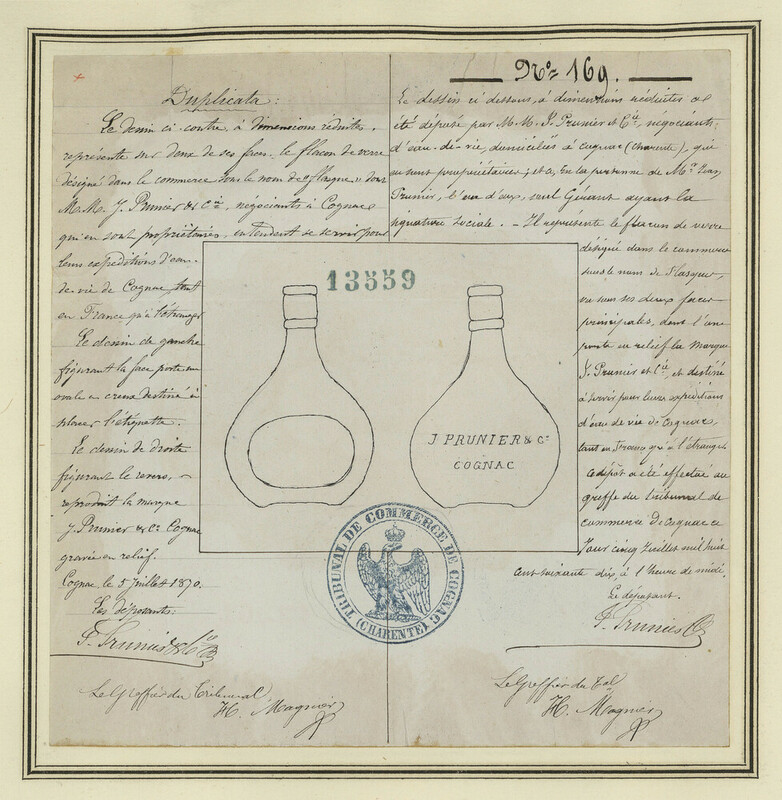 Duplicata :
Le dessin ci contre, à dimensions réduites,
représente sur deux de ses faces, le flacon de verre
désigné dans le commerce sous le nom de "flasque" dont
M.M. J. Prunier & Cie, négociants à Cognac
qui en sont propriétaires, entendent se servir pour
leurs expéditions d'eau-
de-vie de Cognac tant
en France qu'à l'étranger
Le dessin de gauche
figurant la face porte un
ovale en creux destiné à
placer l'étiquette.
Le dessin de droite
figurant le revers,
reproduit la marque
J. Prunier & Co Cognac
gravée en relief.
Cognac le 5 Juillet 1870.
Les déposants :
J. Prunier & Cie
Le Greffier du Tribunal
H. Magnier
No 169.
Le dessin ci dessous, à dimensions réduites a
été déposé par M.M. J. Prunier et Cie, négociants
d'eau-de-vie, domiciliés à Cognac (Charente), qui
en sont propriétaires ; et en la personne de Mr
Prunier, l'un d'eux, seul Gérant ayant la
signature sociale. - Il représente le flacon de verre
désigné dans le commerce
sous le nom de flasque,
vu sur ses deux faces
principales, dont l'une
porte en relief la marque
J. Prunier et Cie, et destiné
à servir pour leurs expéditions
d'eau de vie de Cognac,
tant en France qu'à l'étranger
Ce dépôt a été effectué au
greffe du tribunal de
commerce de Cognac ce
jour cinq Juillet mil huit
cent soixante dix, à l'heure de midi.
Le déposant.
J. Prunier & Cie
Le Greffier du Tal
H. Magnier
13559
J. PRUNIER & Co
COGNAC
TRIBUNAL DE COMMERCE DE COGNAC
(CHARENTE)